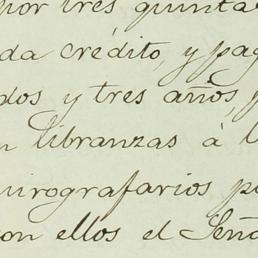 por tres quinta
da crédito, y pag
dos y tres años, p
n libranzas á l
uirografarios p
con ellos el Seño